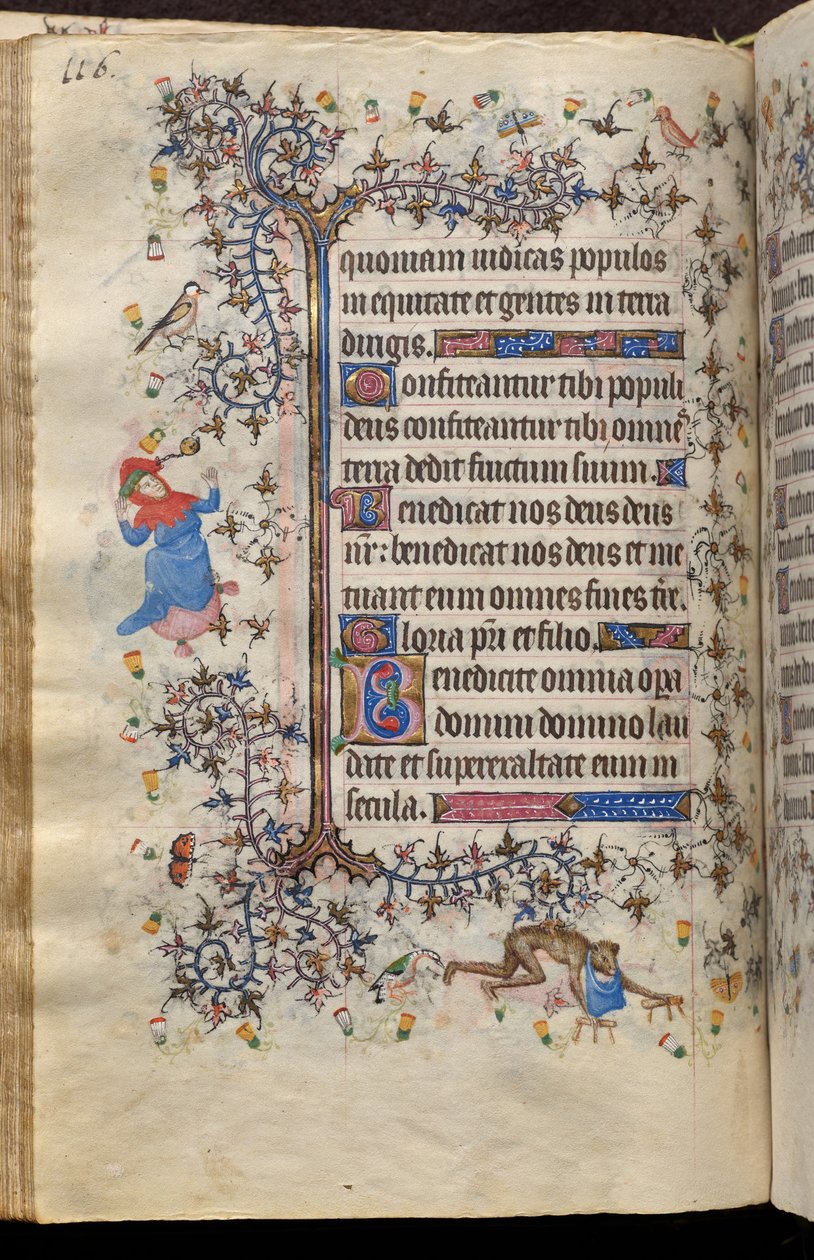 116.
quoniam iudicas populos
in equitate et gentes in terra
dirigis.
Confiteantur tibi populi
deus confiteantur tibi omnes
terra dedit fructum suum.
Benedicat nos deus deus
nr̄: benedicat nos deus et me
tuant eum omnes fines tr̄e.
Gloria pr̄i et filio.
Benedicite omnia opa
domini domino lau
date et superexaltate eum in
secula.